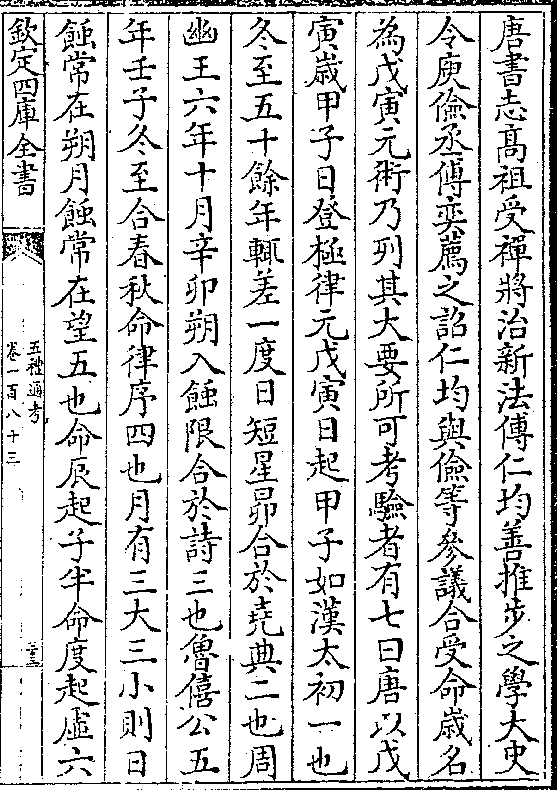 唐書志髙祖受禪將治新法傅仁均善推步之學大史
令庾儉丞傅奕薦之詔仁均與儉等參議合受命歲名
為戊寅元術乃列其大要所可考驗者有七曰唐以戊
寅歲甲子日登極律元戊寅日起甲子如漢太初一也
冬至五十餘年輒差一度日短星昴合於堯典二也周
幽王六年十月辛卯朔入蝕限合於詩三也魯僖公五
年壬子冬至合春秋命律序四也月有三大三小則日
蝕常在朔月蝕常在望五也命辰起子半命度起虛六
欽定四庫全書
五禮通考
卷一百八十三